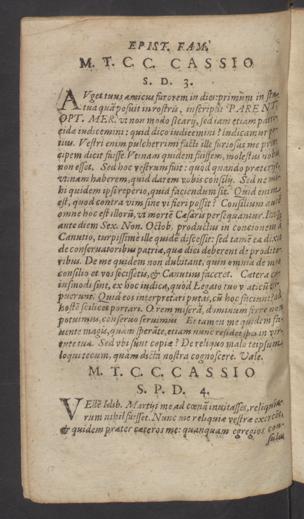 EPIST. FAM.
M. T. C. C. CASSIO
S. D. 3.
AVget tuus amicus furorem in dies: primùm in sta-
tua quã posuit in rostris, inscripsit PARENTI
OPT. MER. vt non modo sicarij, sed iam etiam parri-
cidæ iudicemini: quid dico iudicemini? iudicamur po-
tius. Vestri enim pulcherrimi facti ille furiosus me prin-
cipem dicit fuisse. Vtinam quidem fuissem, molestus nobis
non esset. Sed hoc vestrum est: quod quando præterijt
vtinam haberem, quid darem vobis consilij. Sed ne mi-
hi quidem ipsi reperio, quid faciendum sit. Quid enim
est, quod contra vim sine vi fieri possit? Consilium aut
omne hoc est illorũ, vt mortē Cæsaris persequantur. Itaq;
ante diem Sex. Non. Octob. productus in concionem à
Canutio, turpissimè ille quidẽ discessit: sed tamẽ ea dixit
de conseruatoribus patriæ, quæ dici deberent de prodito-
ribus. De me quidem non dubitanter, quin omnia de meo
consilio et vos fecissetis, & Canutius faceret. Cætera
eiusmodi sint, ex hoc iudica, quòd Legato tuo viaticũ eri-
puerunt. Quid eos interpretari putas, cũ hoc faciunt? ad
hostẽ scilicet portare. O rem miserã, dominum ferre non
potuimus, conseruo seruimus. Et tamen me quidem fa-
uente magis, quàm sperante, etiam nunc residet spes in vir-
tute tua. Sed vbi sunt copiæ? De reliquo malo teipsum
loqui tecum, quàm dicta nostra cognoscere. Vale.
M. T. C. C. CASSIO
S. P. D. 4.
VEllẽ Idib. Martijs me ad cœnã inuitasses, reliquia-
rum nihil fuisset. Nunc me reliquiæ vestræ exercẽt,
& quidem præter cæteros me: quanquam egregios con-
sules